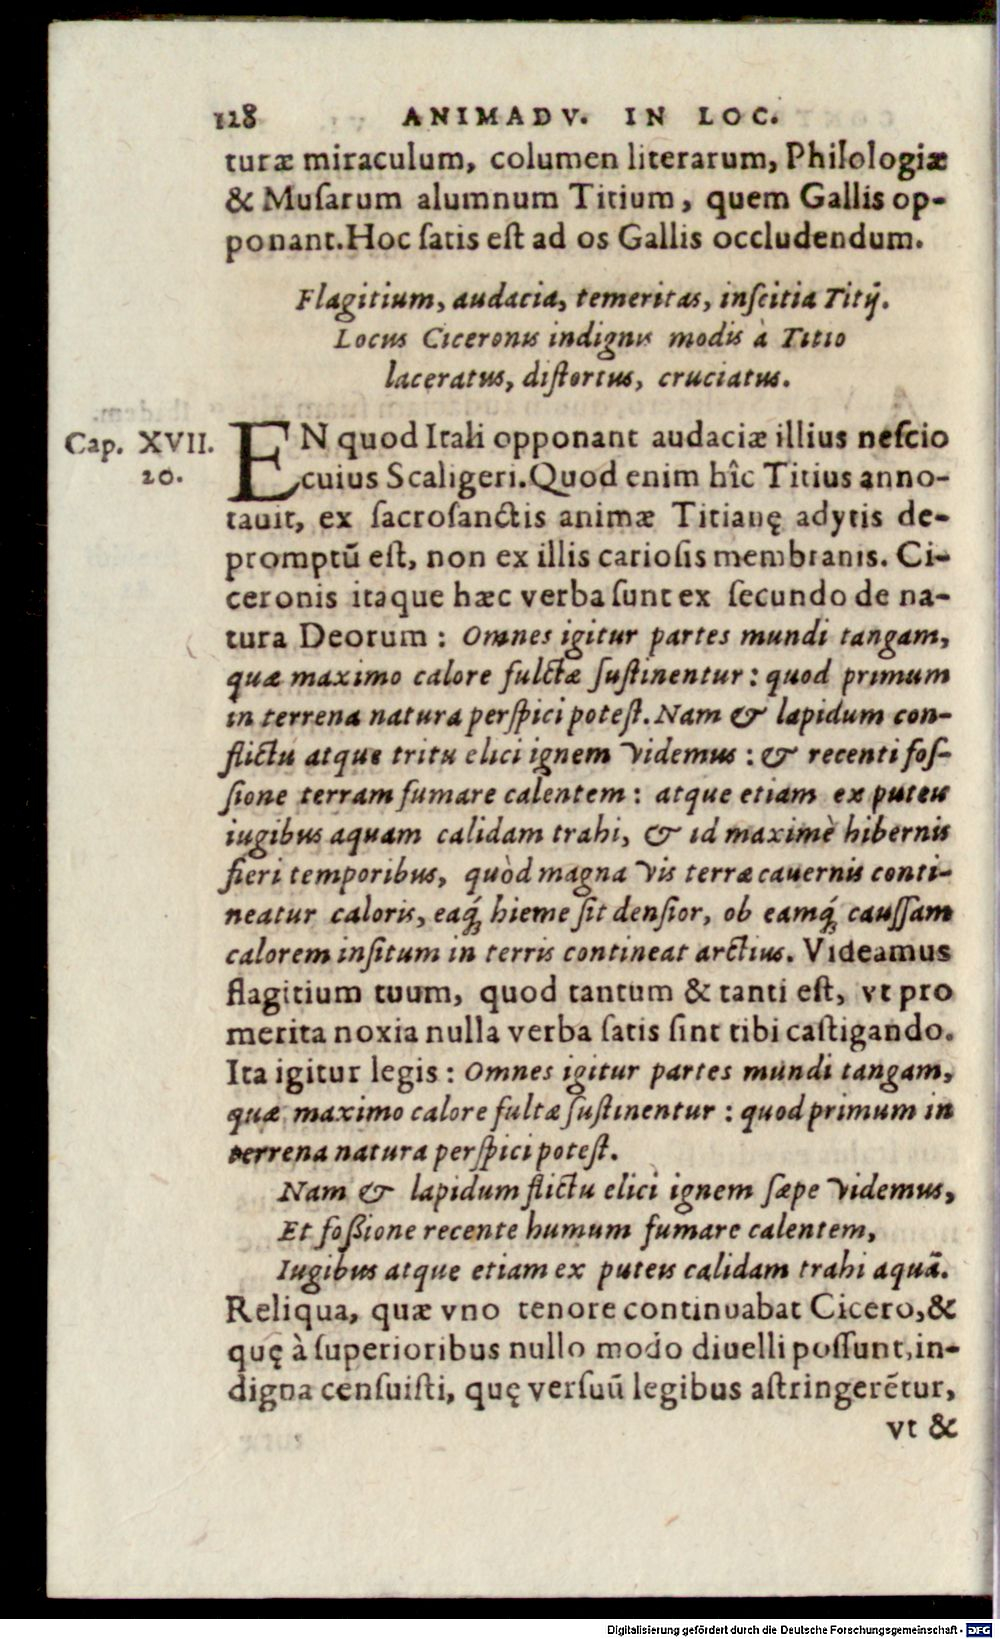 128 ANIMADV. IN LOC.
turæ miraculum, columen literarum, Philologiæ
& Musarum alumnum Titium, quem Gallis op-
ponant. Hoc satis est ad os Gallis occludendum.
Flagitium, audacia, temeritas, inscitia Titij.
Locus Ciceronis indignis modis à Titio
laceratus, distortus, cruciatus.
Cap. XVII.
20.
EN quod Itali opponant audaciæ illius nescio
cuius Scaligeri. Quod enim hîc Titius anno-
tauit, ex sacrosanctis animæ Titianę adytis de-
promptū est, non ex illis cariosis membranis. Ci-
ceronis itaque hæc verba sunt ex secundo de na-
tura Deorum : Omnes igitur partes mundi tangam,
quæ maximo calore fulctæ sustinentur : quod primum
in terrena natura perspici potest. Nam & lapidum con-
flictu atque tritu elici ignem videmus : & recenti fos-
sione terram fumare calentem : atque etiam ex puteis
iugibus aquam calidam trahi, & id maximè hibernis
fieri temporibus, quòd magna vis terræ cauernis conti-
neatur caloris, eaq́; hieme sit densior, ob eamq́; caussam
calorem insitum in terris contineat arctius. Videamus
flagitium tuum, quod tantum & tanti est, vt pro
merita noxia nulla verba satis sint tibi castigando.
Ita igitur legis : Omnes igitur partes mundi tangam,
quæ maximo calore fultæ sustinentur : quod primum in
terrena natura perspici potest.
Nam & lapidum flictu elici ignem sæpe videmus,
Et foßione recente humum fumare calentem,
Iugibus atque etiam ex puteis calidam trahi aquã.
Reliqua, quæ vno tenore continuabat Cicero, &
quę à superioribus nullo modo diuelli possunt, in-
digna censuisti, quę versuū legibus astringerētur,
vt &
Digitalisierung gefördert durch die Deutsche Forschungsgemeinschaft - DFG